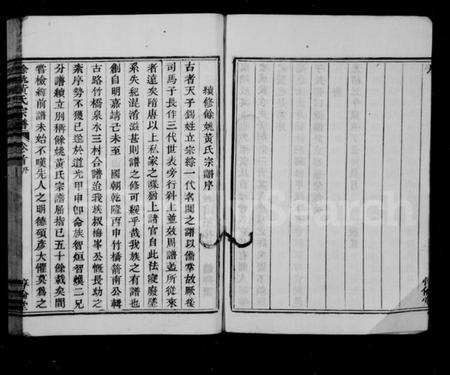 續修餘姚黃氏宗譜序
古者天子錫姓立宗綜一代名閥之譜以故厥後
司馬子長作三代世表旁行斜上並效周譜蓋所從來
者遠矣隋唐以上私家之牒猶上諸官自此祛廢墜
系失紀混淆滋甚則譜之修可緩乎哉我族之有譜也
創自明嘉靖己未至 國朝乾隆丙申竹橋箭南公輯
古路竹橋泉水三村合譜迨我族叔梅峯公慨長幼之
紊序勢不獲已遂於道光甲申卹命族智烜智嫫二兄
分譜穎立別稱餘姚黃氏宗譜屈指已五十餘載矣間
嘗檢繹前譜未始不嘆先人之明德碩彥大懼莫為之
餘姚黃氏宗譜 卷首 序
惇倫堂